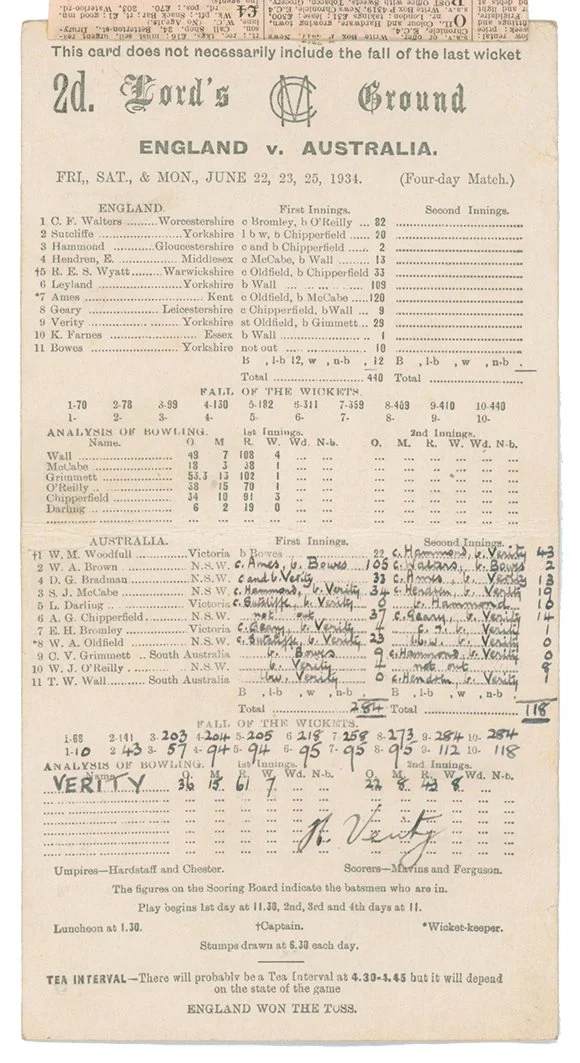 This card does not necessarily include the fall of the last wicket
2d. Lord's MCC Ground
ENGLAND v. AUSTRALIA.
FRI., SAT., & MON., JUNE 22, 23, 25, 1934. (Four-day Match.)
ENGLAND. First Innings. Second Innings.
1 C. F. Walters ........Worcestershire c Bromley, b O'Reilly ... 82
2 Sutcliffe ..............Yorkshire l b w, b Chipperfield ...... 20
3 Hammond ......Gloucestershire c and b Chipperfield ...... 2
4 Hendren, E. ............Middlesex c McCabe, b Wall ...... 13
†5 R. E. S. Wyatt.......Warwickshire c Oldfield, b Chipperfield 33
6 Leyland ...............Yorkshire b Wall ... ... ... ... 109
*7 Ames .................... Kent c Oldfield, b McCabe ....120
8 Geary ...............Leicestershire c Chipperfield, bWall ... 9
9 Verity ..................Yorkshire st Oldfield, b Gimmett .. 29
10 K. Farnes .................Essex b Wall ........................ 1
11 Bowes ..................Yorkshire not out ..................... 10
B , l-b 12, w , n-b , 12 B , l-b , w , n-b .
Total .....................440 Total ...............
FALL OF THE WICKETS.
1-70 2-78 3-99 4-130 5-182 6-311 7-359 8-409 9-410 10-440
1- 2- 3- 4- 5- 6- 7- 8- 9- 10-
ANALYSIS OF BOWLING. 1st Innings. 2nd Innings.
Name. O. M R. W. Wd. N-b. O. M. R. W. Wd. N-b.
Wall ..................... 49 7 108 4
McCabe .................. 18 3 38 1
Grimmett ............... 53.3 13 102 1
O'Reilly .................. 38 15 70 1
Chipperfield ............ 34 10 91 3
Darling .................. 6 2 19 0
AUSTRALIA. First Innings. Second Innings.
†1 W. M. Woodfull ...........Victoria b Bowes 22 c. Hammond, b. Verity 43
2 W. A. Brown ................N.S.W. c. Ames, b. Bowes 105 c. Walters, b. Bowes 2
4 D. G. Bradman ..............N.S.W. c and b Verity 33 c. Ames, b. Verity 13
3 S. J. McCabe .................N.S.W. c. Hammond, b. Verity 34 c. Hendren, b. Verity 19
5 L. Darling ....................Victoria c. Sutcliffe, b. Verity 0 b. Hammond 10
6 A. G. Chipperfield..........N.S.W. not out 37 c. Geary, b. Verity 14
7 E. H. Bromley ...............Victoria c. Geary, b. Verity 4 b. Verity
*8 W. A. Oldfield ...............N.S.W. c. Sutcliffe, b. Verity 23 l.b.w. b. Verity 0
9 C. V. Grimmett ..South Australia b. Bowes 9 c. Hammond b. Verity 0
10 W. J. O'Reilly ...............N.S.W. b. Verity 4 not out 8
11 T. W. Wall ........South Australia lbw. Verity 0 c. Hendren, b. Verity 1
B , l-b , w , n-b , B , l-b , w , n-b ,
Total ..................... 284 Total ............... 118
FALL OF THE WICKETS.
1-68 2-141 3-203 4-204 5-205 6 218 7-258 8-273 9-284 10-284
1-10 2 43 3- 57 4-94 5-94 6- 95 7-95 8-95 9- 112 10- 118
ANALYSIS OF BOWLING. 1st Innings. 2nd Innings.
Name. O. M R. W Wd. N-b. O. M. R. W. Wd. N-b.
VERITY 36 15 61 7 22 8 43 8
H. Verity
Umpires—Hardstaff and Chester. Scorers—Mavins and Ferguson.
The figures on the Scoring Board indicate the batsmen who are in.
Play begins 1st day at 11.30, 2nd, 3rd and 4th days at 11.
Luncheon at 1.30. †Captain. *Wicket-keeper.
Stumps drawn at 6.30 each day.
TEA INTERVAL—There will probably be a Tea Interval at 4.30-4.45 but it will depend
on the state of the game
ENGLAND WON THE TOSS.